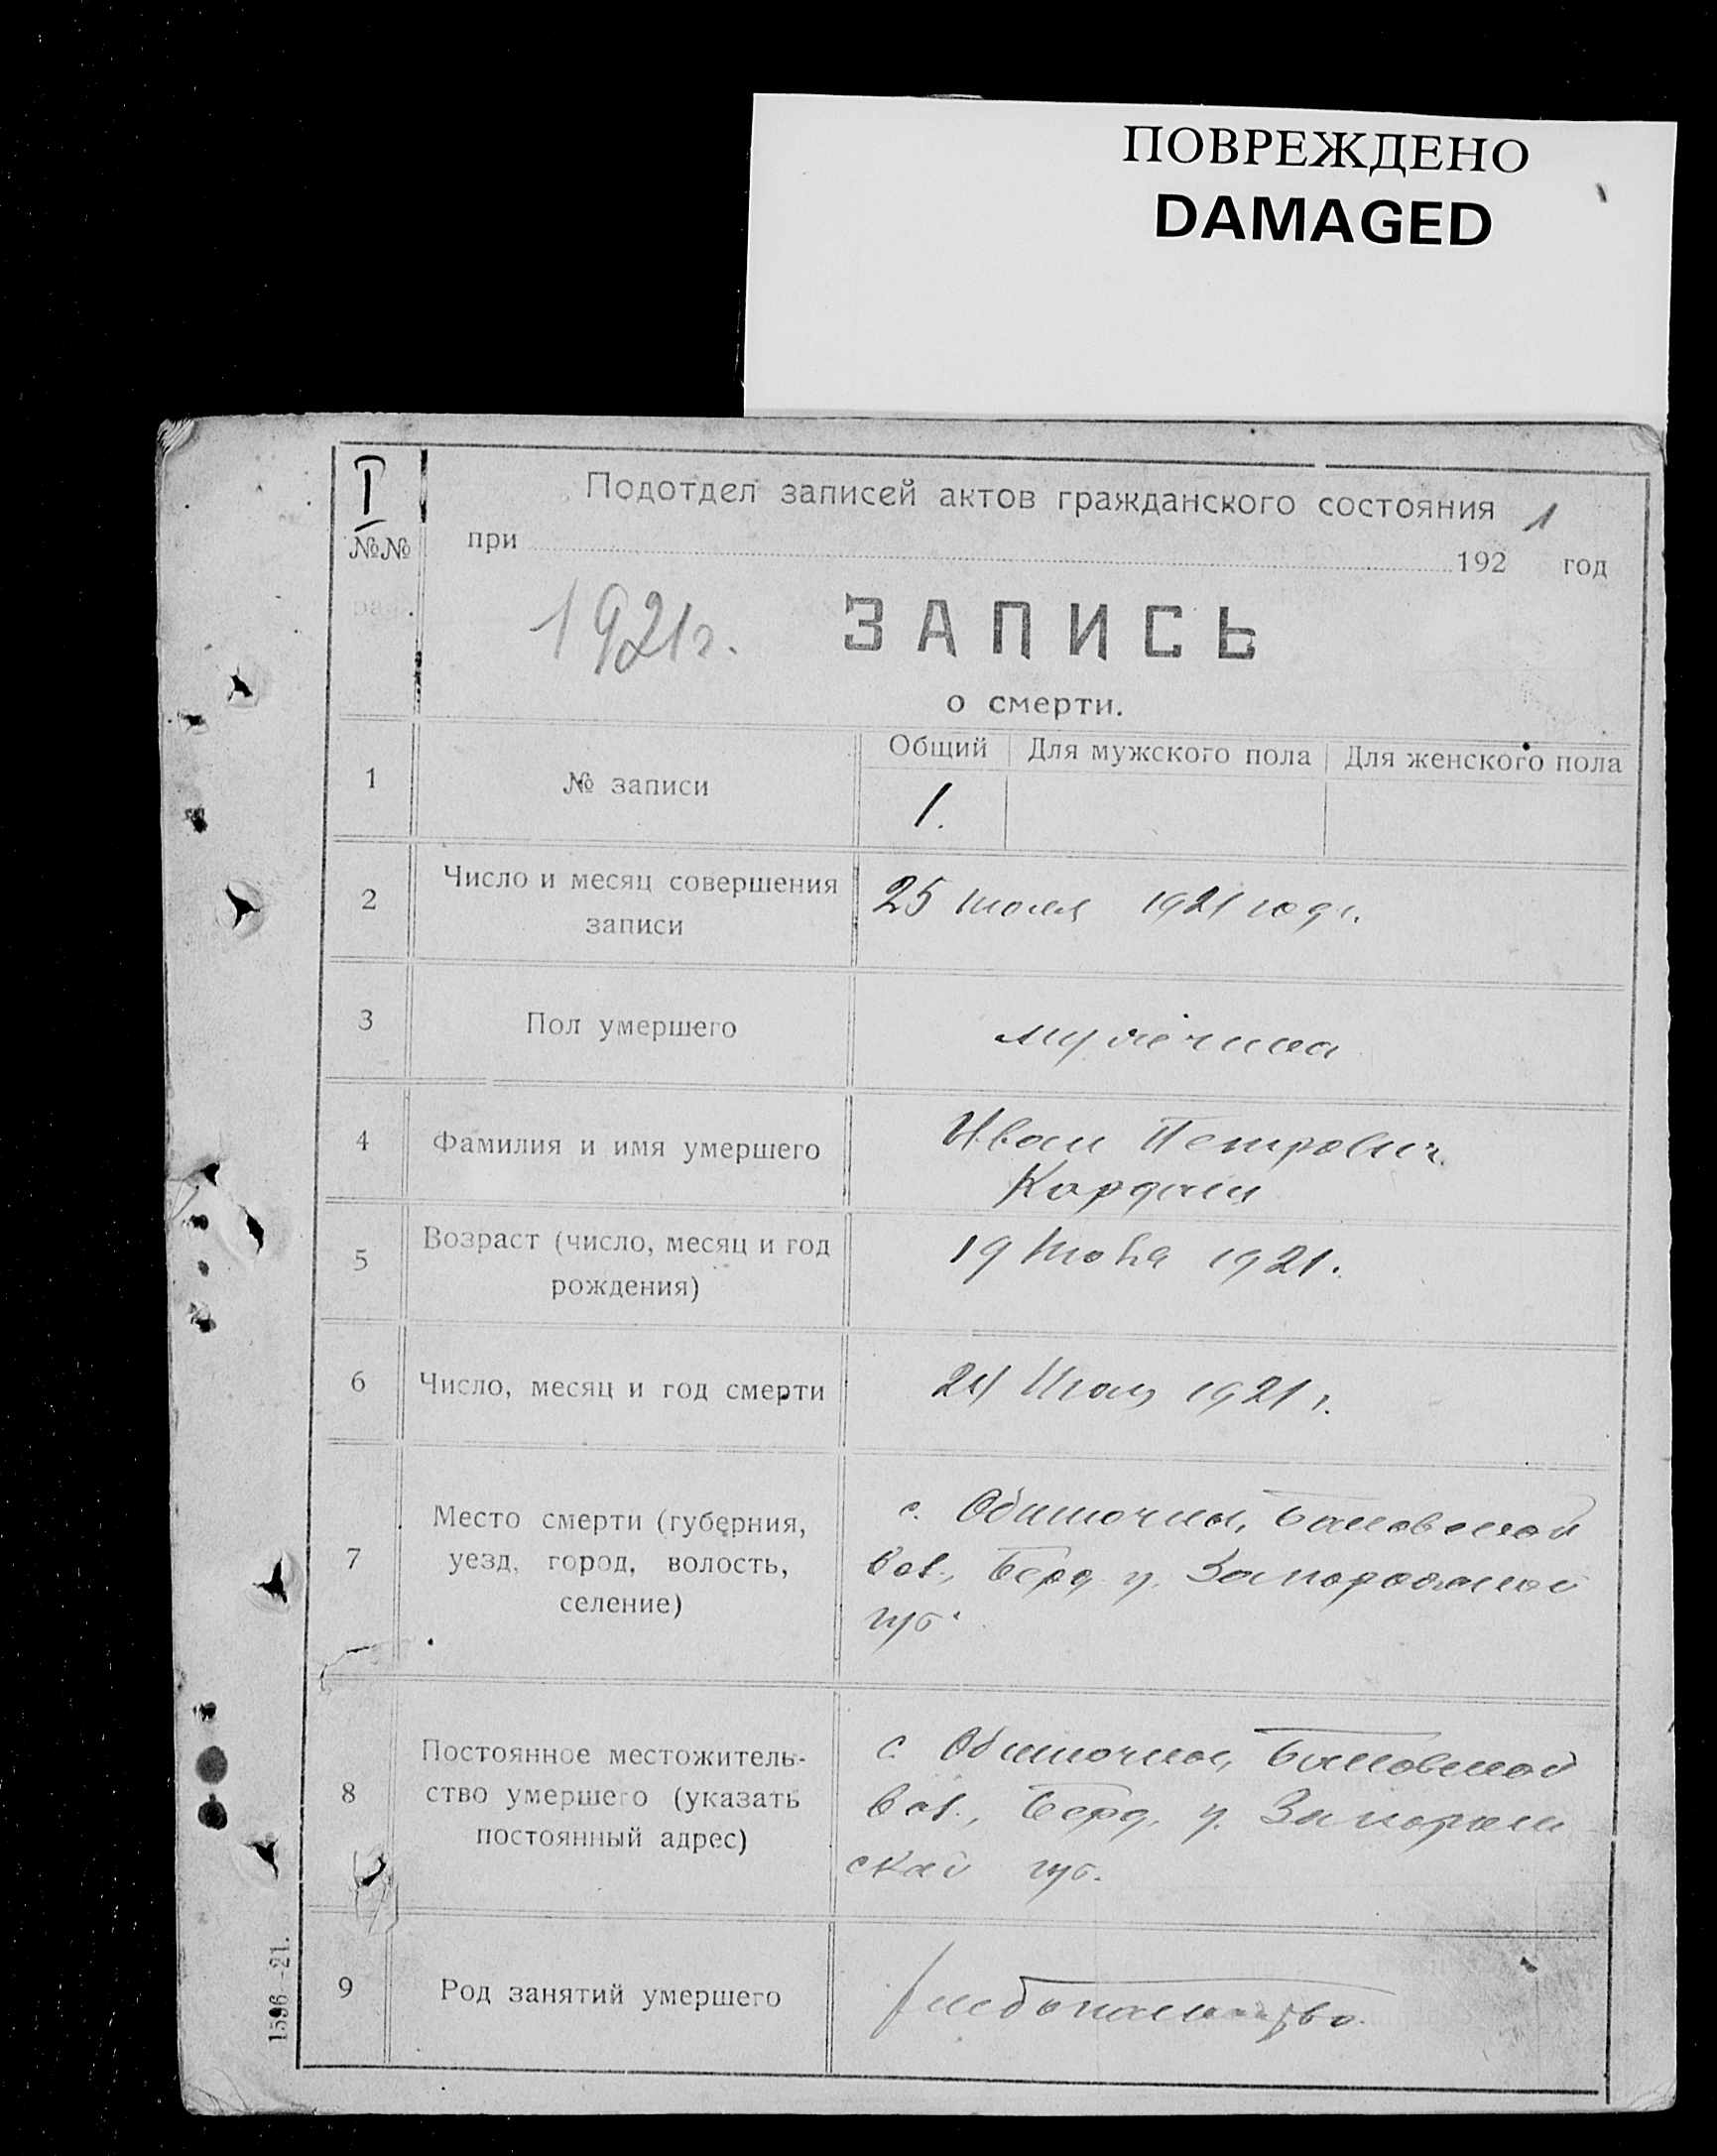 ПОВРЕЖДЕНО
DAMAGED
I
№№
Подотдел записей актов гражданского состояния
при 192 1 год
1921 г.
ЗАПИСЬ
о смерти.
1 № записи
Общий Для мужского пола Для женского пола
1.
2 Число и месяц совершения
записи
25 Июля 1921 года.
3 Пол умершего
мужчина
4 Фамилия и имя умершего
Иван Петрович
Кордаш
5 Возраст (число, месяц и год
рождения)
19 1921.
6 Число, месяц и год смерти
24 Июля 1921 г.
7 Место смерти (губерния,
уезд, город, волость,
селение)
с. Обиточна, Бановской
вол., Берд. у. Запорожской
губ.
8 Постоянное местожитель-
ство умершего (указать
постоянный адрес)
с. Обиточна, Бановской
вол., Берд. у. Запорож
ской губ.
9 Род занятий умершего
хлебопашество.
1596—21.